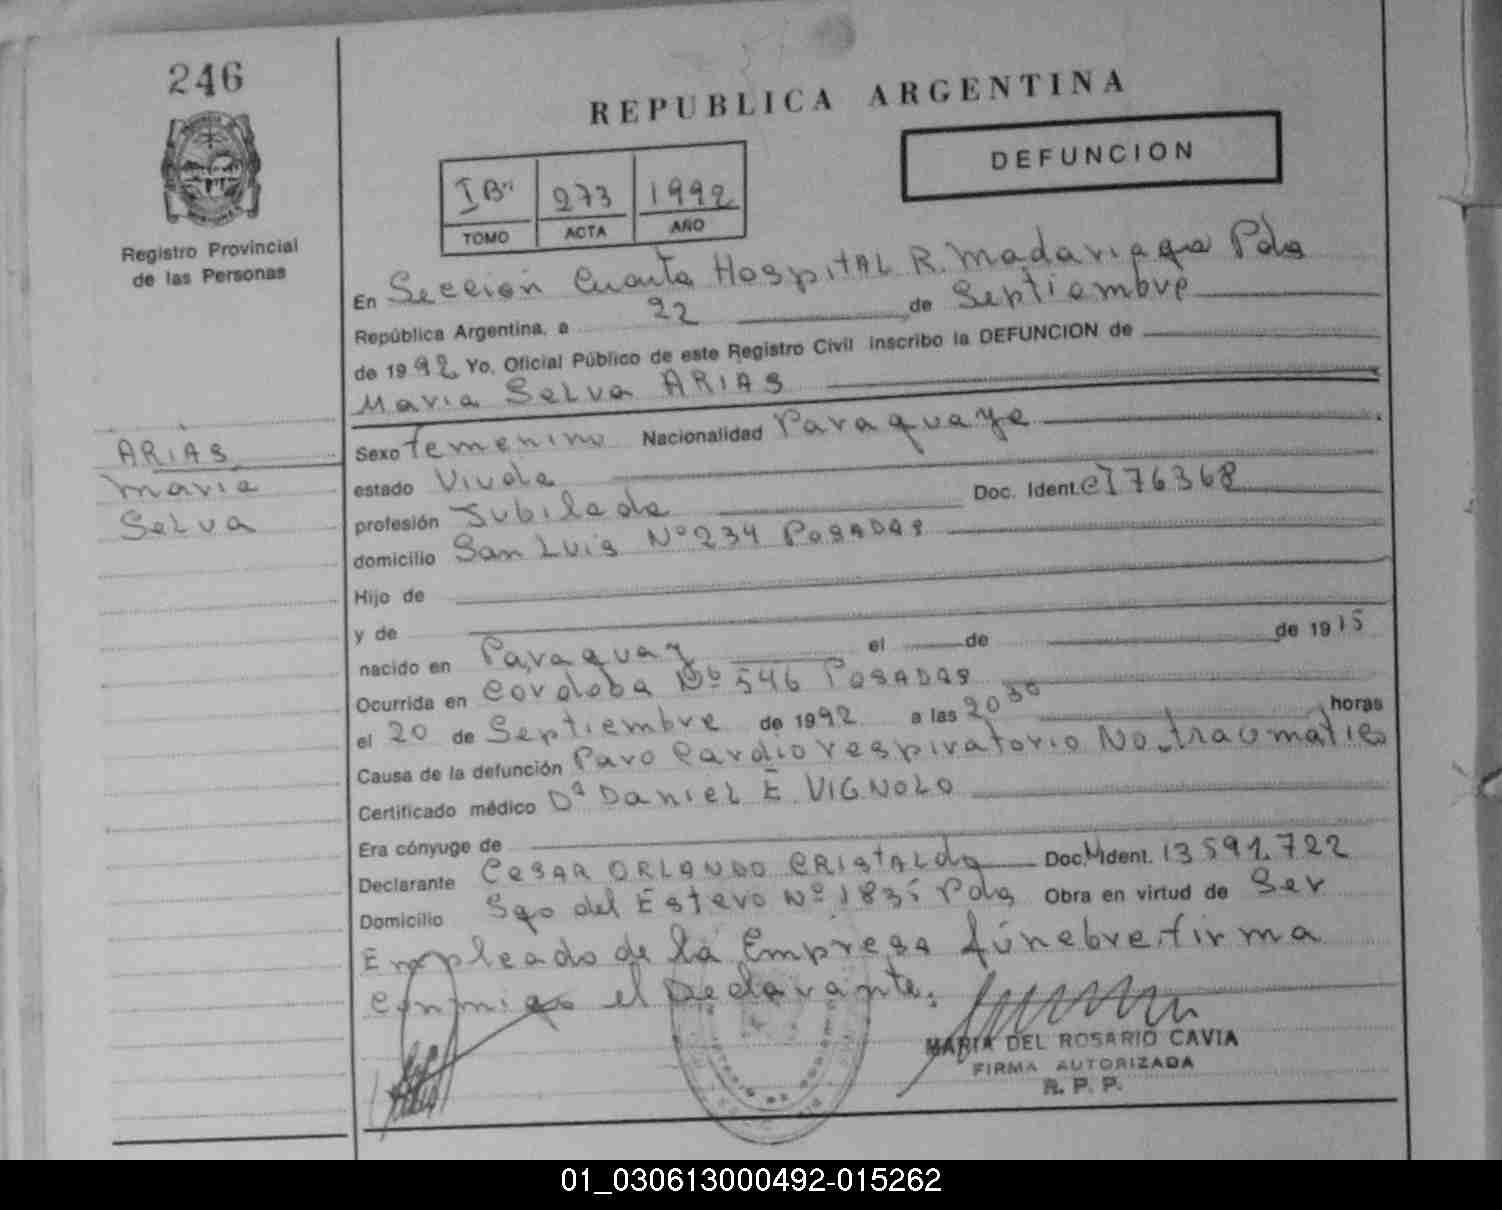 246
REPUBLICA ARGENTINA
DEFUNCION
I Bis 273 1992
TOMO ACTA AÑO
Registro Provincial
de las Personas
En Sección Cuarta Hospital R. Madariaga Pdas
República Argentina, a 22 de Septiembre
de 1992 Yo, Oficial Público de este Registro Civil inscribo la DEFUNCION de
Maria Selva ARIAS
ARIAS
Maria
Selva
Sexo Femenino Nacionalidad Paraguaya
estado Viuda
profesión Jubilada Doc. Ident. CI 76368
domicilio San Luis Nº 234 POSADAS
Hijo de
y de
nacido en Paraguay el de de 1915
Ocurrida en Cordoba Nº 546 POSADAS
el 20 de Septiembre de 1992 a las 20 30 horas
Causa de la defunción Paro Cardiorespiratorio No traumatico
Certificado médico Dr Daniel E. VIGNOLO
Era cónyuge de
Declarante CESAR ORLANDO CRISTALDO Doc. Ident. 13591.722
Domicilio Sgo del Estero Nº Pdas Obra en virtud de Ser
Empleado de la Empresa fúnebre, firma
conmigo el Declarante.
MARIA DEL ROSARIO CAVIA
FIRMA AUTORIZADA
R. P. P.
01_030613000492-015262